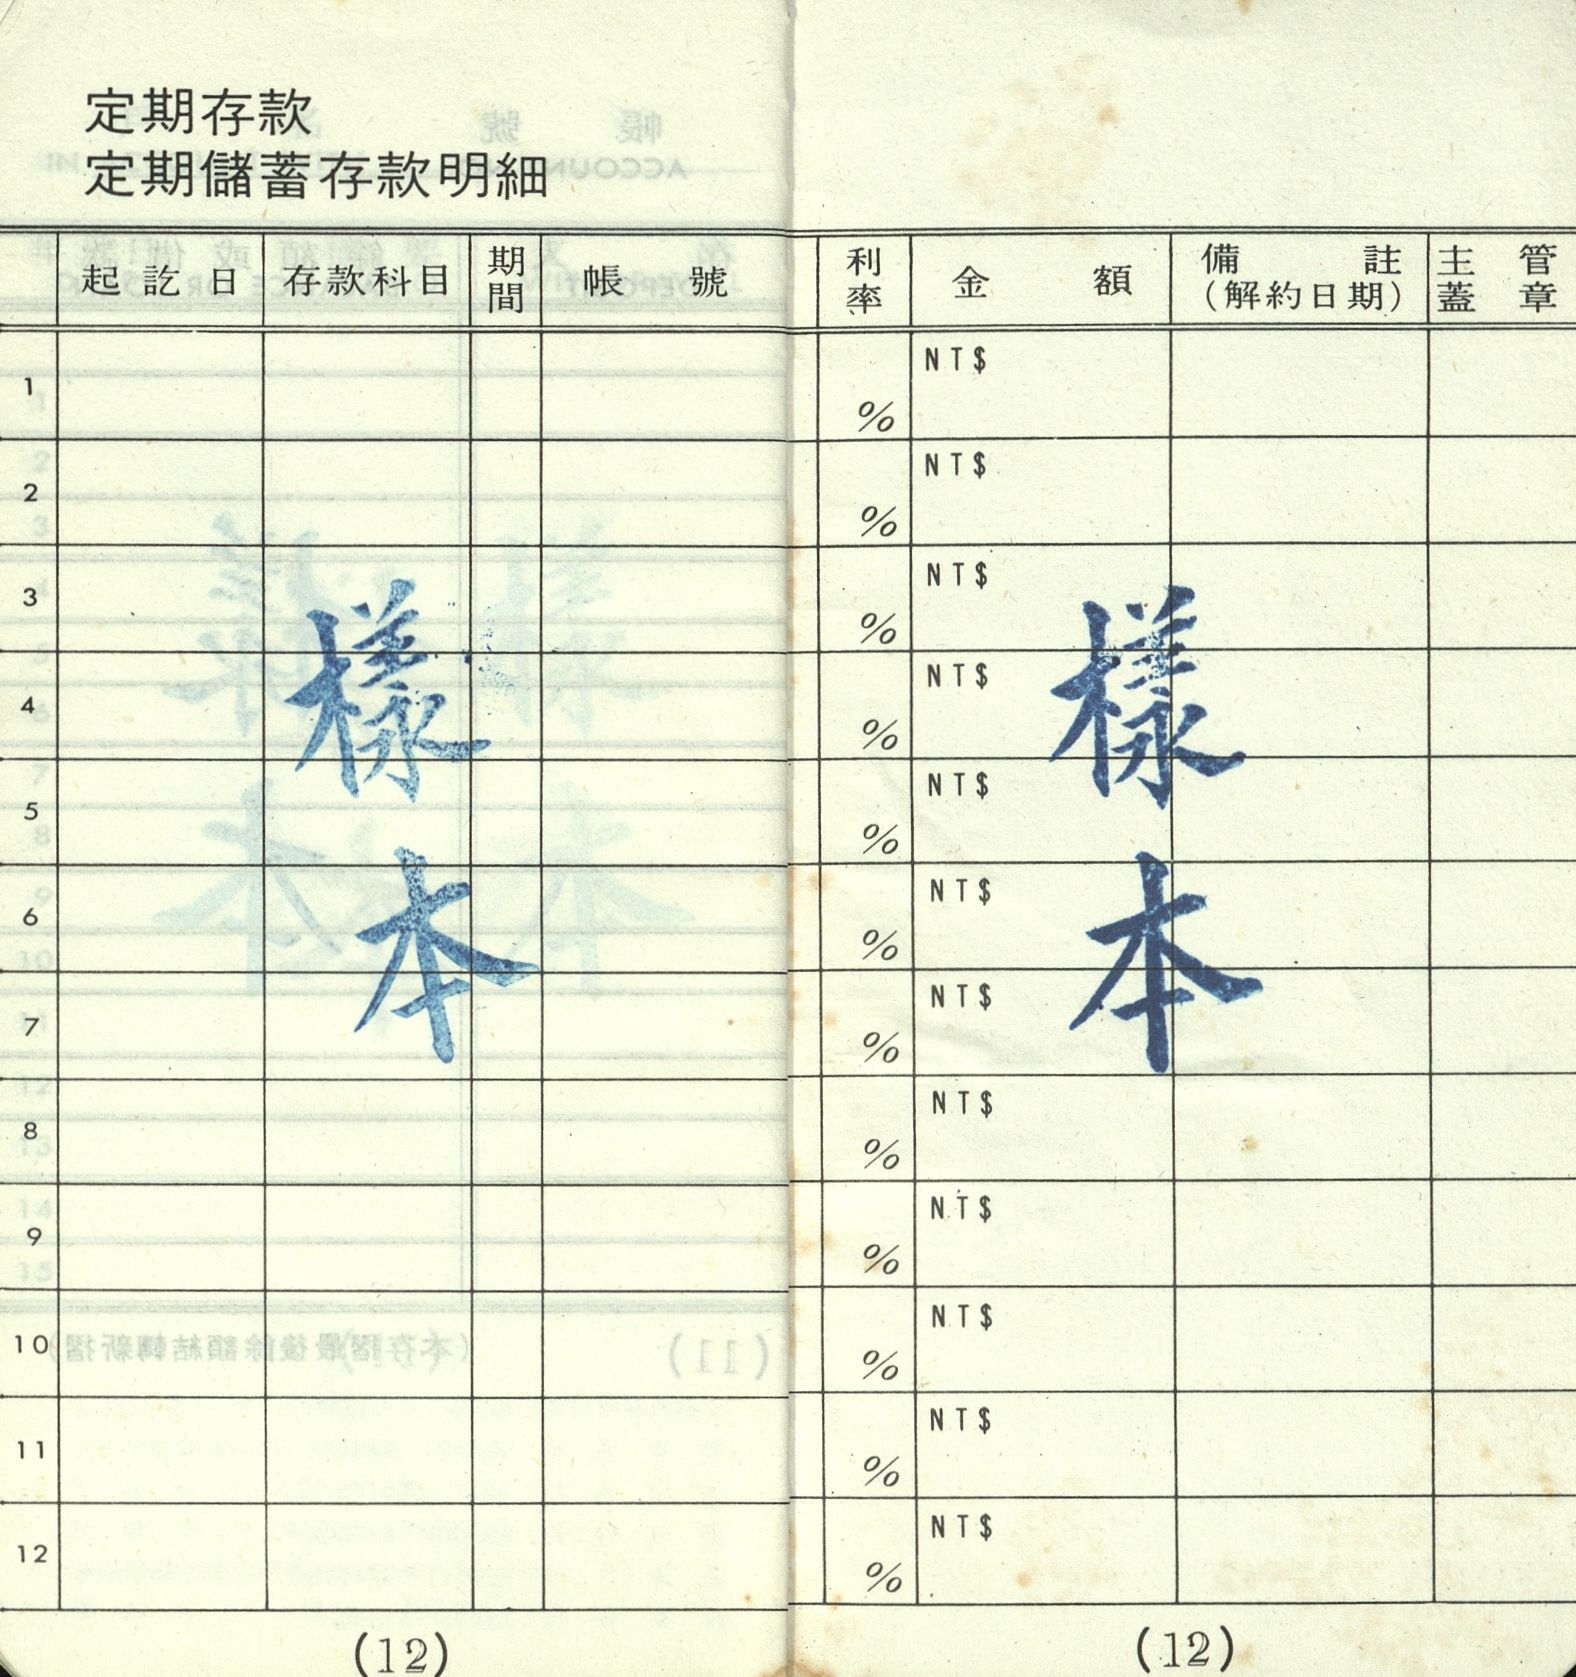 定期存款
定期儲蓄存款明細
起訖日 存款科目 期間 帳號 利率 金額 備註(解約日期) 主管蓋章
1 % NT$
2 % NT$
3 % NT$
4 % NT$
5 % NT$
6 % NT$
7 % NT$
8 % NT$
9 % NT$
10 % NT$
11 % NT$
12 % NT$
樣本 樣本
(12) (12)